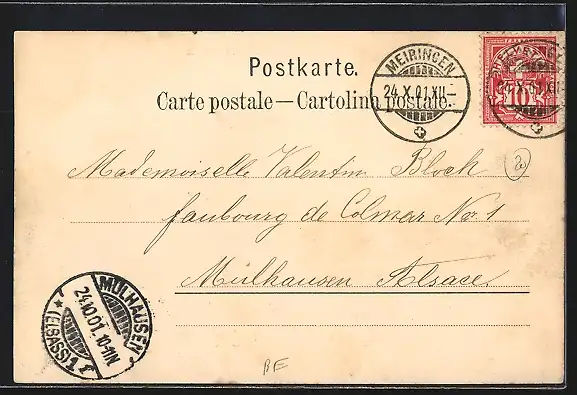 Postkarte.
Carte postale — Cartolina postale.
MEIRINGEN
24.X.01.XII—
HELVETIA
10
Mademoiselle Valentin Bloch
faubourg de Colmar No. 1
Mülhausen Alsace
MÜLHAUSEN
24.10.01.10-11N.
* (ELSASS) 1 r
BE